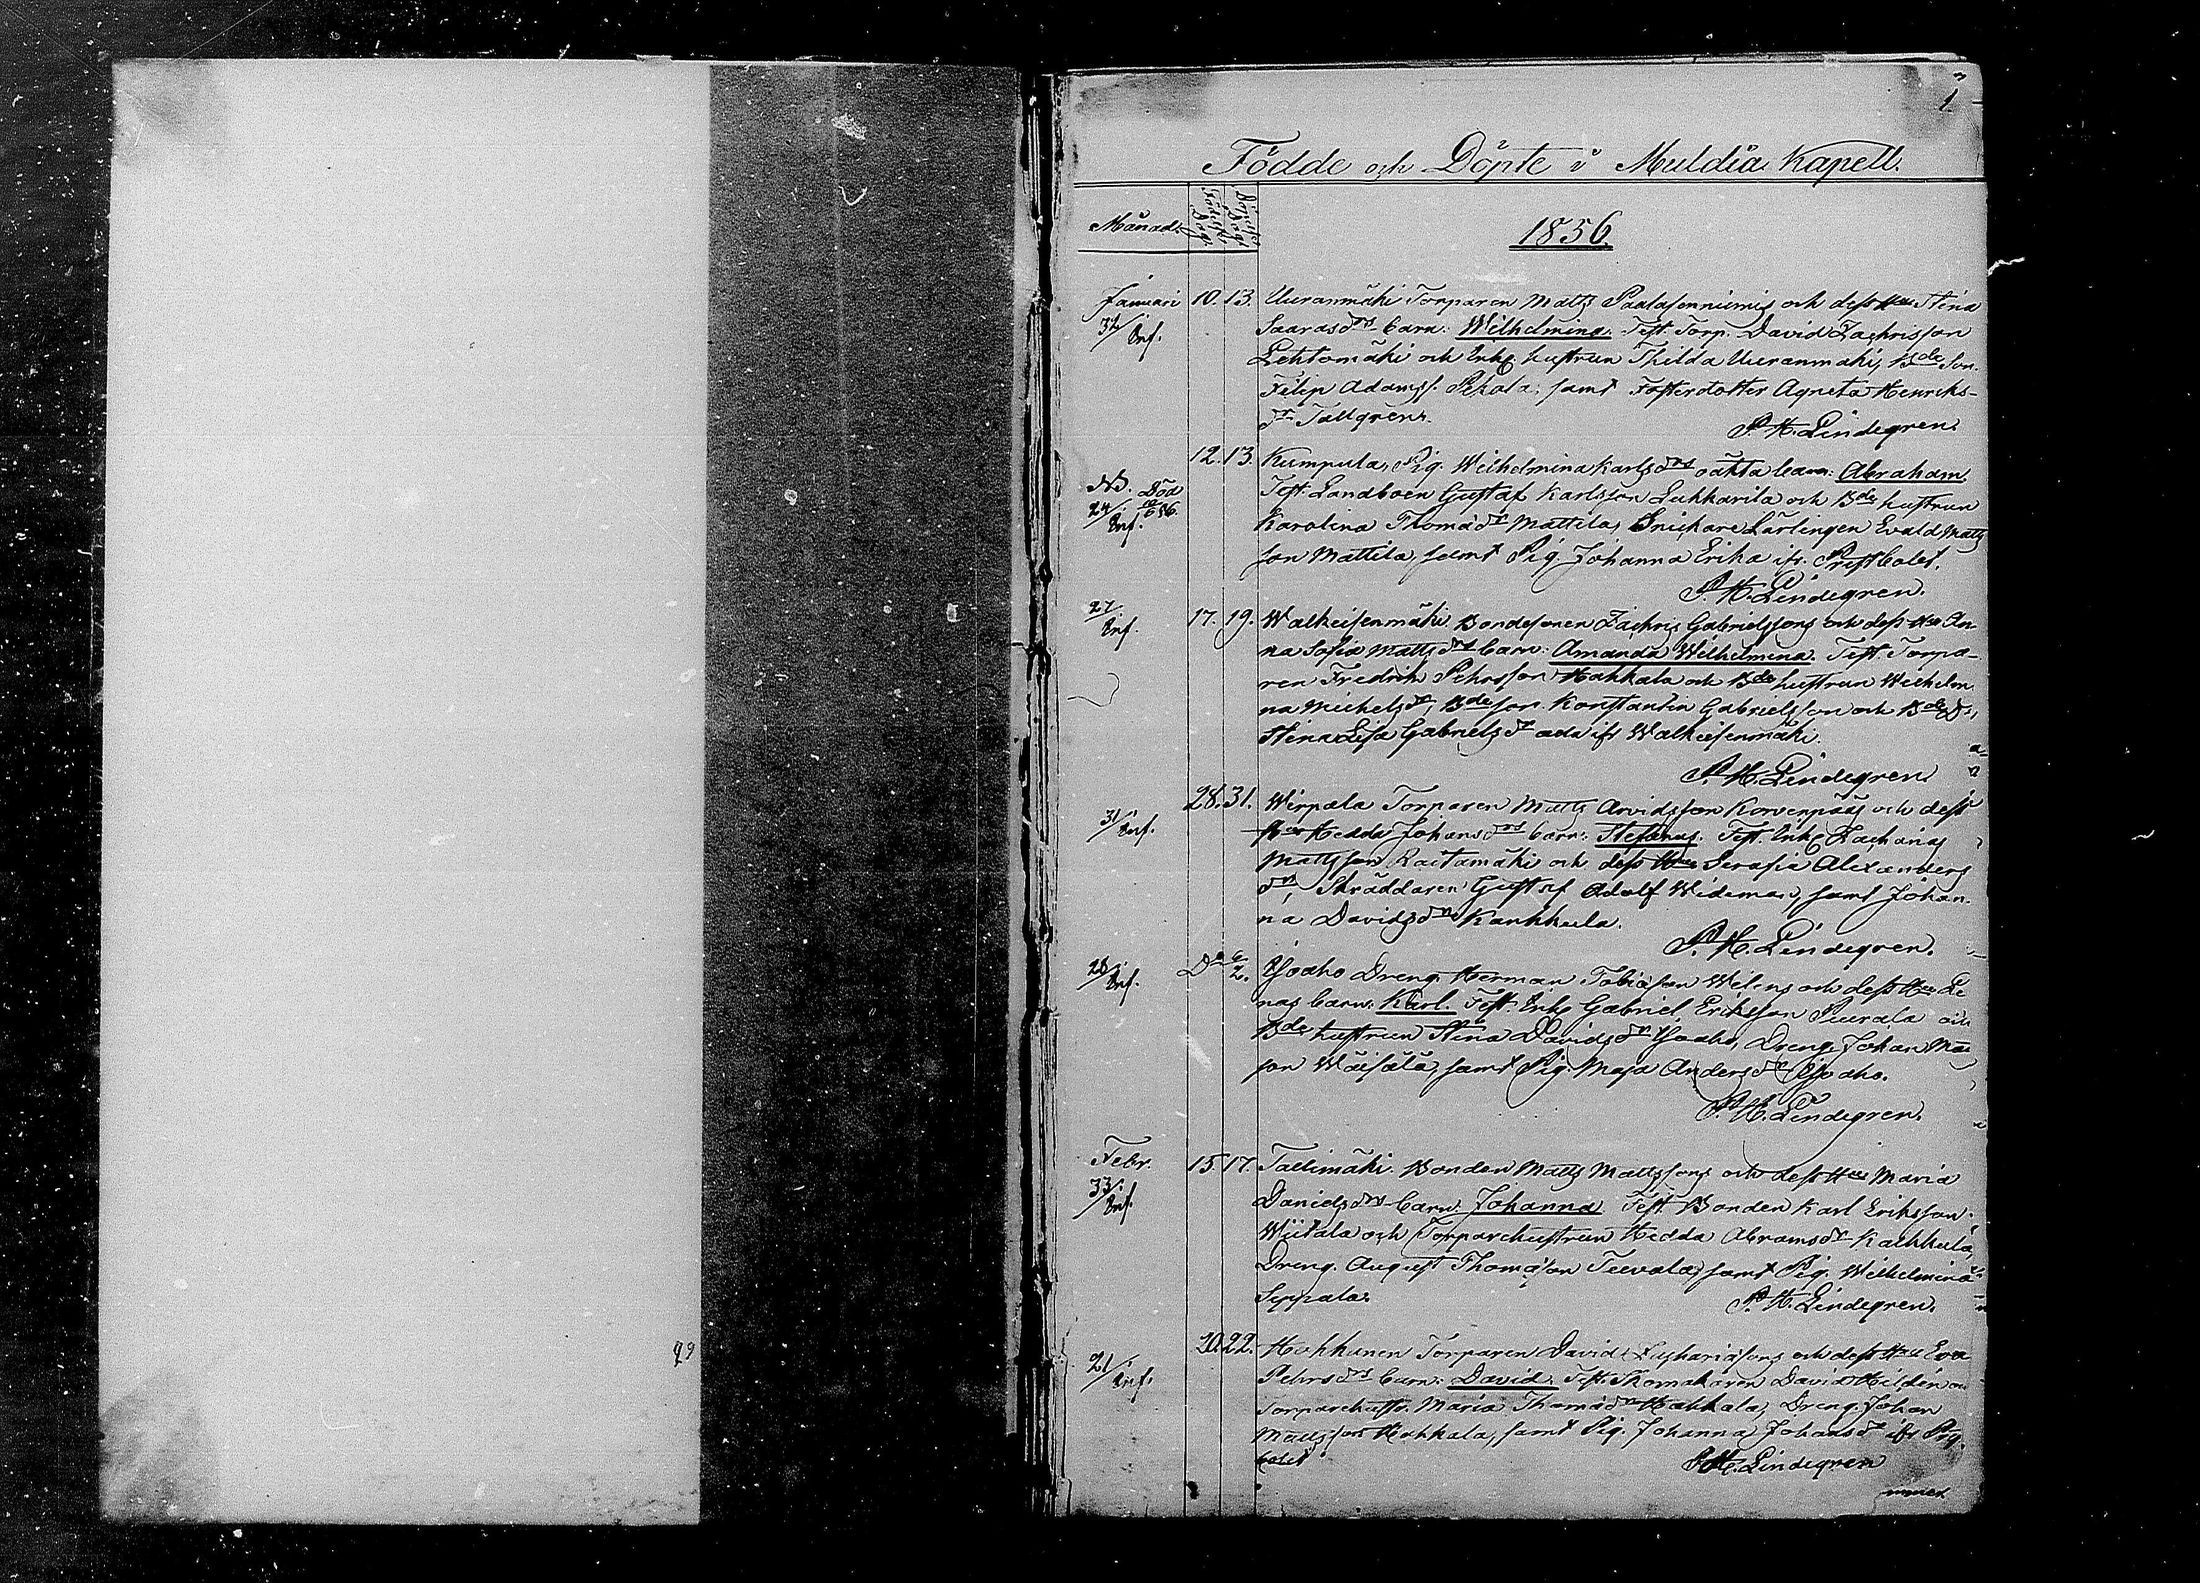 1
Födde och Döpte i Muldia Kapell.
Månad. Födelse Dag Döpelse Dag
1856.
Januari 10. 13. Uuranmäki Torparen Matts Paalasenniemis och dess Hu Stina
32/ Enf. Saarasdrs barn: Wilhelmina. Test. Torp. David Zachrisson
Lehtomäki och Enkg. hustrun Thilda Uuranmäki, Bde Son.
Filip Adamss. Pekala, samt Fosterdotter Agneta Henriks-
dr Tallgren.
P. H. Lindegren.
12. 13. Kumpula, Pig. Wilhelmina Karlsdrs oäkta barn: Abraham.
NB. Död Test. Landboen Gustaf Karlsson Lukkarila och Bde hustrun
24/ Enf. Karolina Thomädr Mattila, Snickare Lärlingen Evald Matts
son Mattila, samt Pig. Johanna Erika ifr. Prestbolet.
P. H. Lindegren.
27/ Enf. 17. 19. Walkeisenmäki Bondesonen Zachris Gabrielssons och dess Hu An-
na Sofia Mattsdrs barn: Amanda Wilhelmina. Test. Torpa-
ren Fredrik Pehrsson Hakkala och Bde hustrun Wilhelmi
na Michelsdr, Bdeson Konstantin Gabrielsson och Bdedr,
Stina Lisa Gabrielsdr ifr Walkeisenmäki.
P. H. Lindegren.
28. 31. Wirpala Torparen Matts Arvidsson Korvenpääs och dess
31/ Enf. Hu Hedda Johansdrs barn: Stefanus. Test. Enkg Zacharias
Mattsson Raitamäki och dess Hu Serafia Alexanders
dr, Skräddaren Gustaf Adolf Wideman, samt Johan-
na Davidsdr Kankkula.
P. H. Lindegren.
28/ Enf. Do 2. Ysaho Dreng. Herman Tobiasson Welins och dess Hu Le
nas barn: Karl. Test. Enkg Gabriel Eriksson Puurala och
Bde hustrun Stina Davidsdr Ysaho, Dreng. Johan Matts
son Wäisälä, samt Pig. Maja Andersdr Ysaho.
P. H. Lindegren.
Febr. 15. 17. Tallimäki Bonden Matts Mattssons och dess Hu Maria
33/ Enf. Danielsdrs barn: Johanna Test. Bonden Karl Eriksson
Wiitala och Torparehustrun Hedda Abramsdr Kalkkula,
Dreng. August Thomasson Teevala, samt Pig. Wilhelmina
Seppälä.
P. H. Lindegren.
20. 22. Hokkanen Torparen David Zachariasons och dess Hu Eva
21/ Enf. Pehrsdrs barn: David. Test. Skomakaren David Hilden och
Torparehustr. Maria Thomädr Hakkala, Dreng. Johan
Mattsson Hakkala, samt Pig. Johanna Johansdr ifr Prest-
bolet
P. H. Lindegren